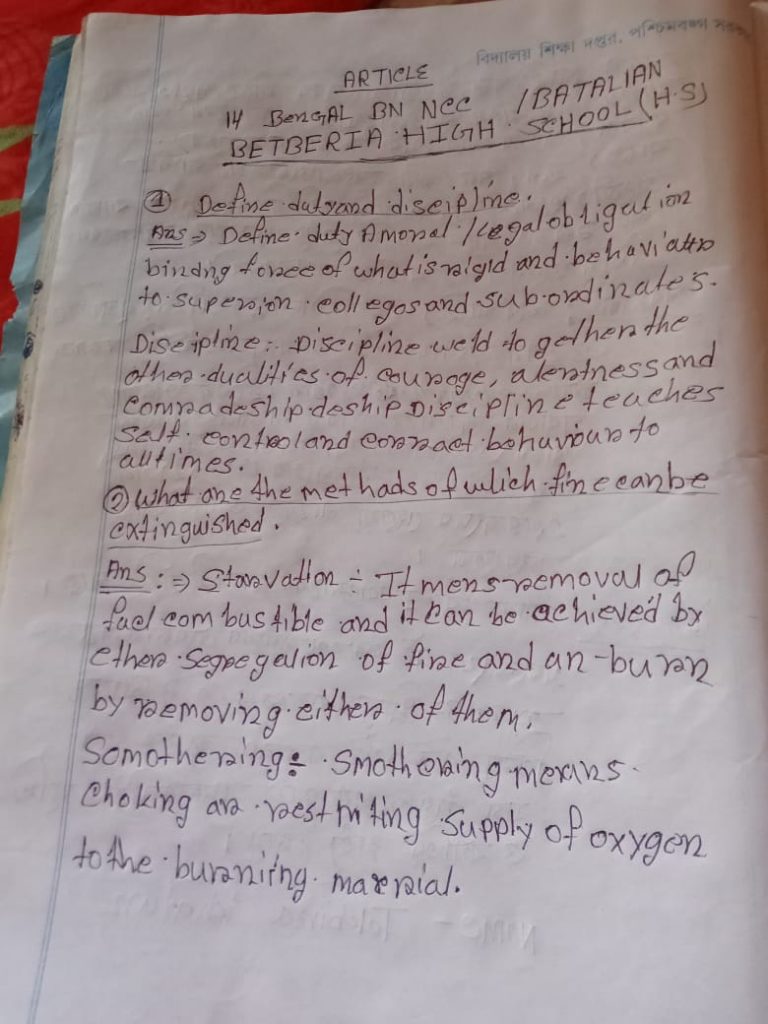 বিদ্যালয় শিক্ষা দপ্তর, পশ্চিমবঙ্গ
ARTICLE
14 BenGAL BN NCC / BATALIAN
BETBERIA HIGH SCHOOL (H.S)
① Define dutyand diseipline.
Ans ⇒ Define duty A moral / legal obligation
bindng force of whatis raigid and behaviour
to superior collegos and sub-ordinates.
Diseipline:. Discipline weld to gethere the
other dualities of courage, alertness and
Comradeship deship Discipline teaches
Self control and correact behaviour to
all times.
② What are the methads of which fire can be
extinguished.
Ans : ⇒ Starvation ÷ It mens removal of
fuel com bustible and it can be achieved by
ethere Segregation of fire and un-burn
by removing either of them.
Somothering ÷ Smothering means
Choking are restriting supply of oxygen
to the burning material.